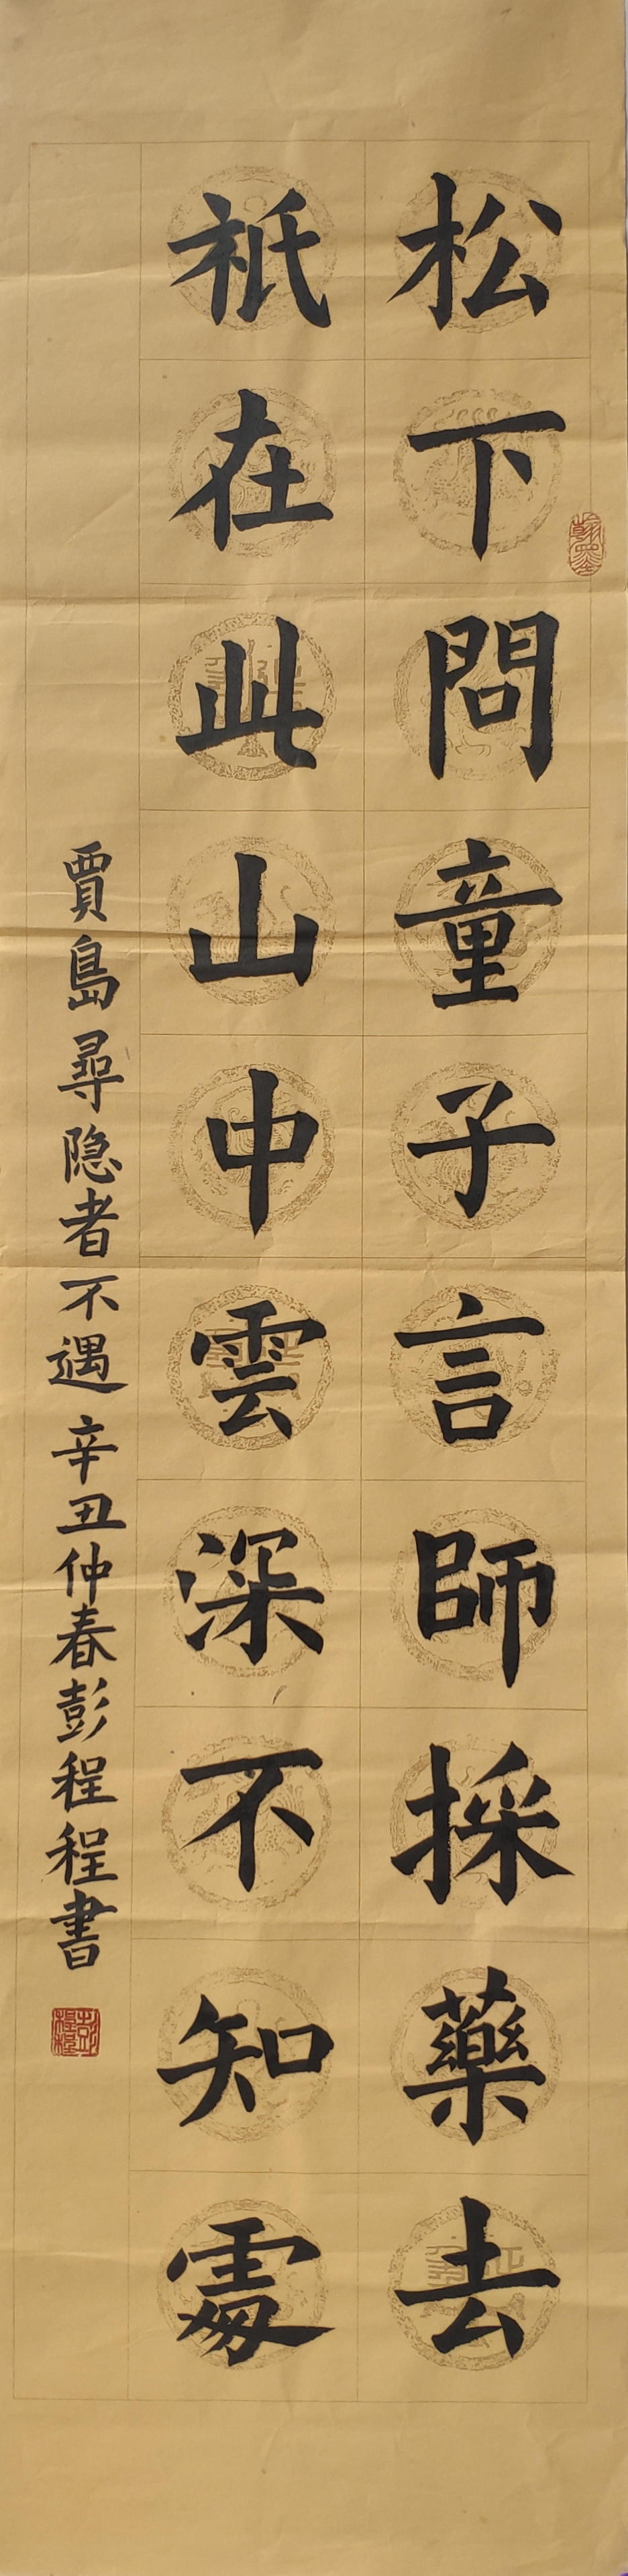 松下問童子言師採藥去
祇在此山中雲深不知處
賈島尋隐者不遇 辛丑仲春彭程程書
翰墨
彭程程